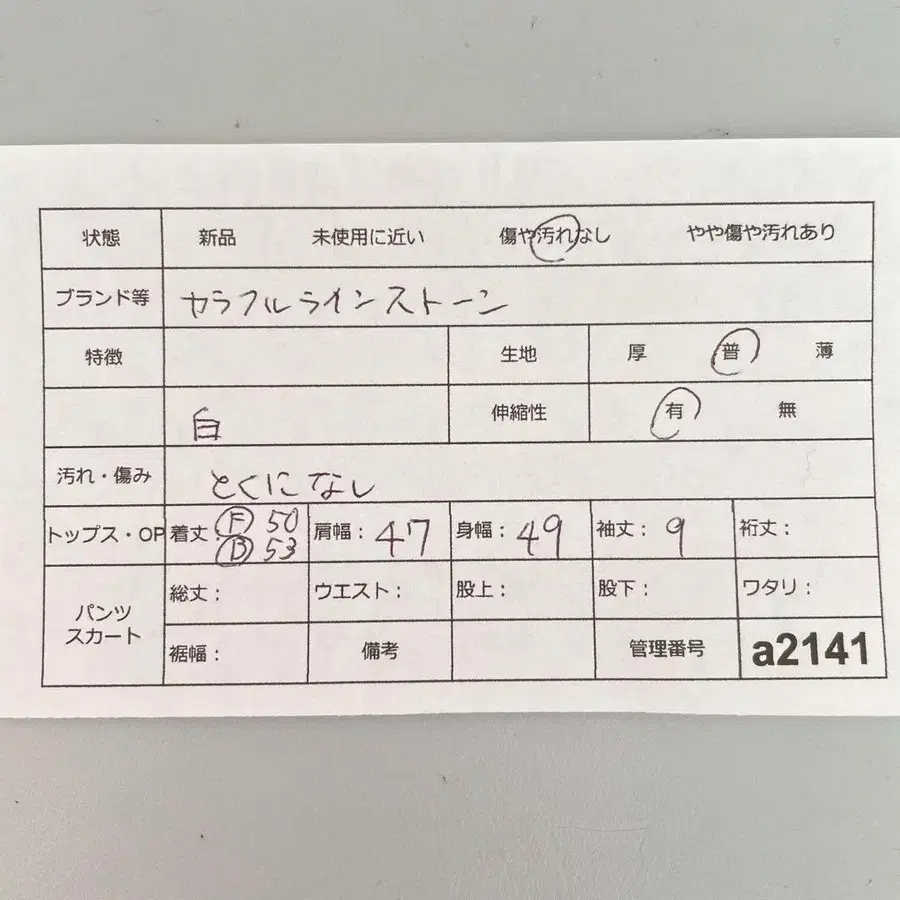 状態 新品 未使用に近い 傷や汚れなし やや傷や汚れあり
ブランド等 カラフルラインストーン
特徴 生地 厚 普 薄
白 伸縮性 有 無
汚れ・傷み とくになし
トップス・OP 着丈: F 50 肩幅: 47 身幅: 49 袖丈: 9 裄丈:
B 53
パンツ スカート 総丈: ウエスト: 股上: 股下: ワタリ:
裾幅: 備考 管理番号 a2141